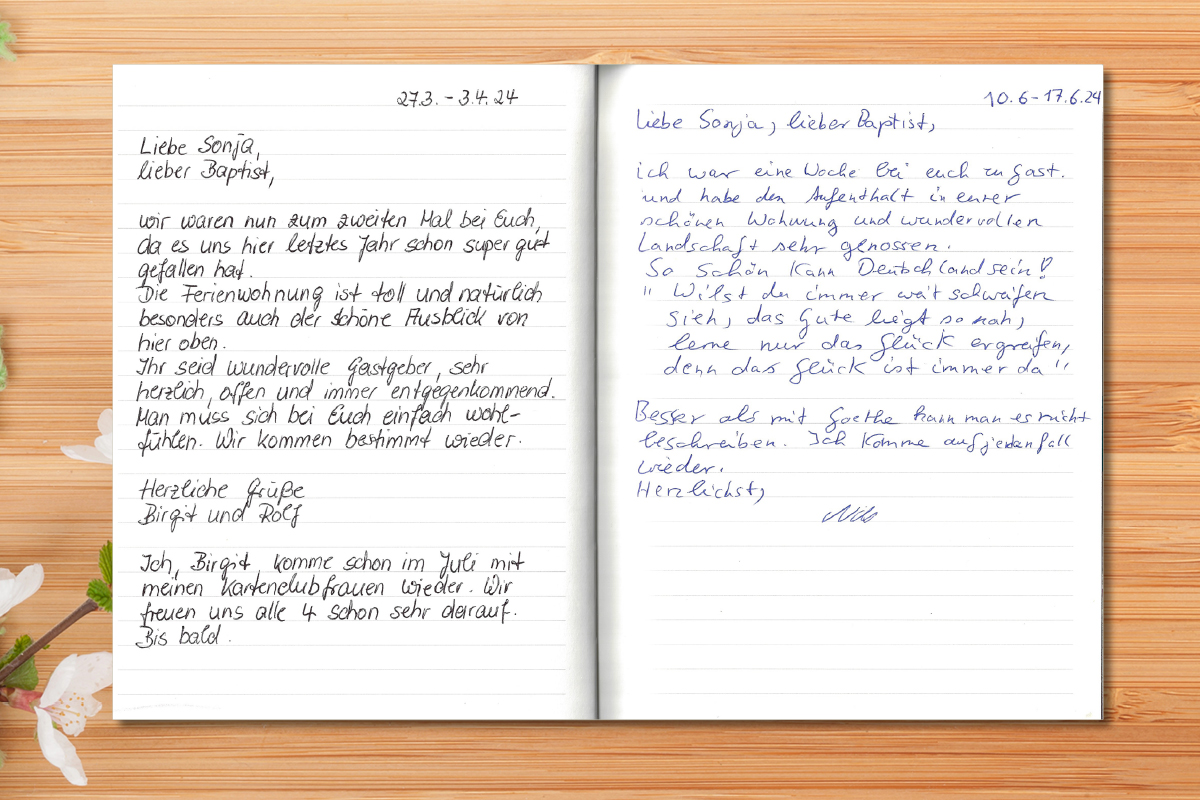 27.3. - 3.4.24
Liebe Sonja,
lieber Baptist,
wir waren nun zum zweiten Mal bei Euch,
da es uns hier letztes Jahr schon super gut
gefallen hat.
Die Ferienwohnung ist toll und natürlich
besonders auch der schöne Ausblick von
hier oben.
Ihr seid wundervolle Gastgeber, sehr
herzlich, offen und immer entgegenkommend.
Man muss sich bei Euch einfach wohl-
fühlen. Wir kommen bestimmt wieder.
Herzliche Grüße
Birgit und Rolf
Ich, Birgit, komme schon im Juli mit
meinen Kartenclubfrauen wieder. Wir
freuen uns alle 4 schon sehr darauf.
Bis bald.
10.6 - 17.6.24
Liebe Sonja, lieber Baptist,
ich war eine Woche bei euch zu Gast.
und habe den Aufenthalt in eurer
schönen Wohnung und wundervollen
Landschaft sehr genossen.
So schön kann Deutschland sein!
" Wilst du immer weit schweifen
sieh, das Gute liegt so nah,
lerne nur das Glück ergreifen,
denn das Glück ist immer da "
Besser als mit Goethe kann man es nicht
beschreiben. Ich komme auf jeden fall
wieder.
Herzlichst,
Nils